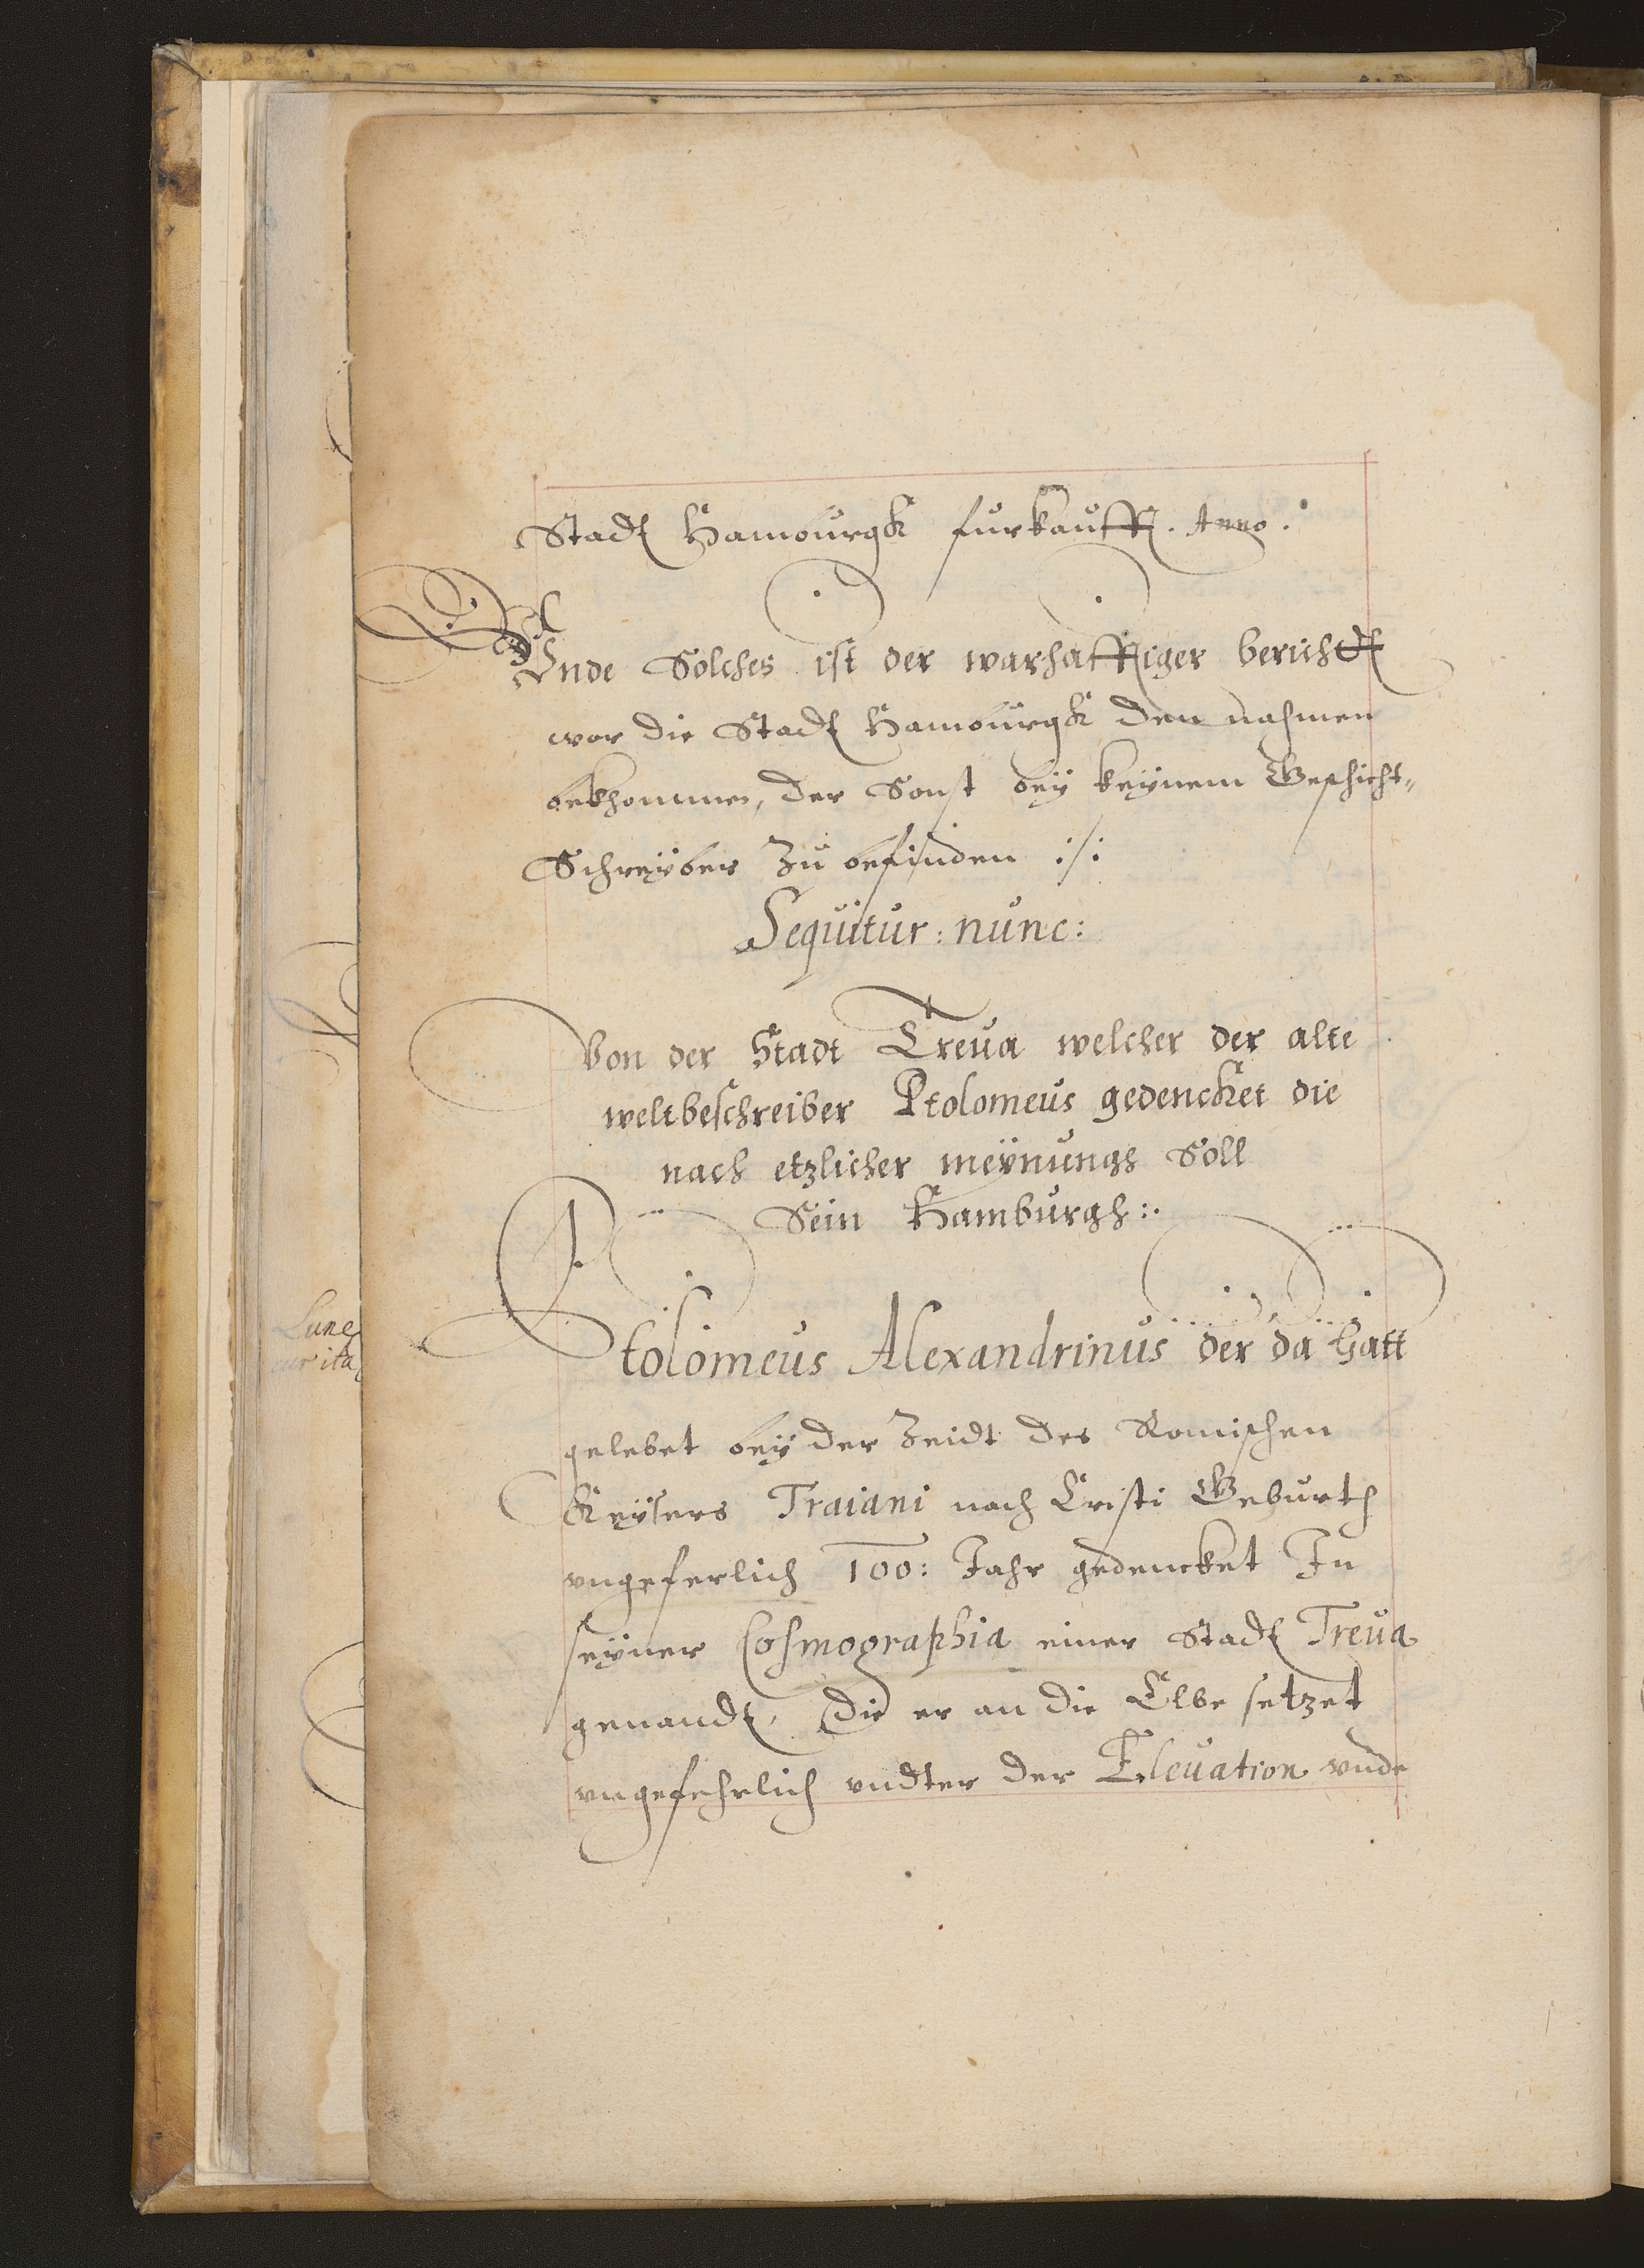 Stadt Hamburgk furkaufft. Anno.
Vnde Solches ist der warhafftiger berichtt
wor die Stadt Hamburgk den nahmen
bekhommen, der Sonst bey keynem Geschicht-
Schreyber Zu befinden ./.
Sequitur: nunc:
Von der Stadt Treua welcher der alte
weltbeschreiber Ptolomeus gedencket die
nach etzlicher meynungh Soll
Sein Hamburgh:.
Ptolomeus Alexandrinus der da hatt
gelebet bey der Zeidt des Romischen
Keysers Traiani nach Cristi Geburth
vngeferlich 100: Jahr gedencket In
seyner Cosmographia einer Stadt Treua
genandt, Die er an die Elbe setzet
vngefehrlich vndter der Eleuation vnde
Lune
ita